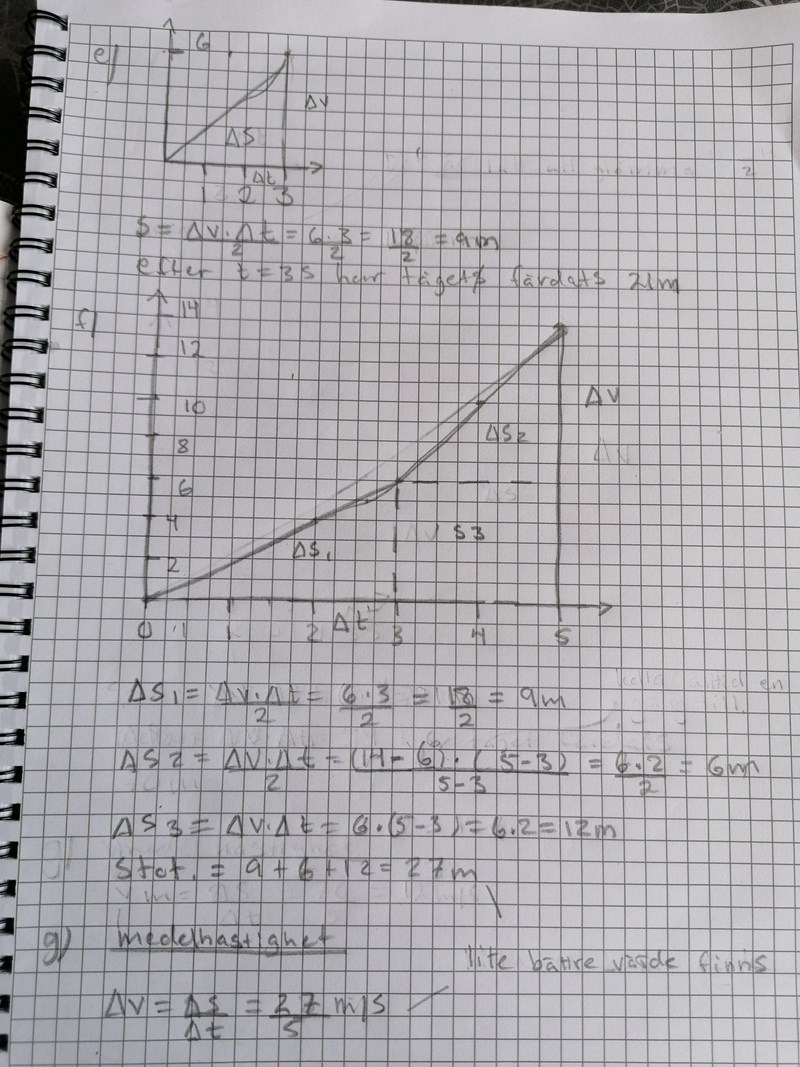 e)
6
ΔV
ΔS
Δt
1 2 3
S = ΔV·Δt/2 = 6·3/2 = 18/2 = 9m
efter t=3s har tågets färdats 21m
f)
14
12
10
8
6
4
2
ΔV
ΔS2
S3
ΔS1
Δt
0 1 2 3 4 5
ΔS1 = ΔV·Δt/2 = 6·3/2 = 18/2 = 9m
ΔS2 = ΔV·Δt/2 = (14-6)·(5-3)/5-3 = 6·2/2 = 6m
ΔS3 = ΔV·Δt = 6·(5-3) = 6·2 = 12m
Stot. = 9+6+12 = 27m
g) medelhastighet
lite bättre värde finns
ΔV = ΔS/Δt = 27/5 m/s